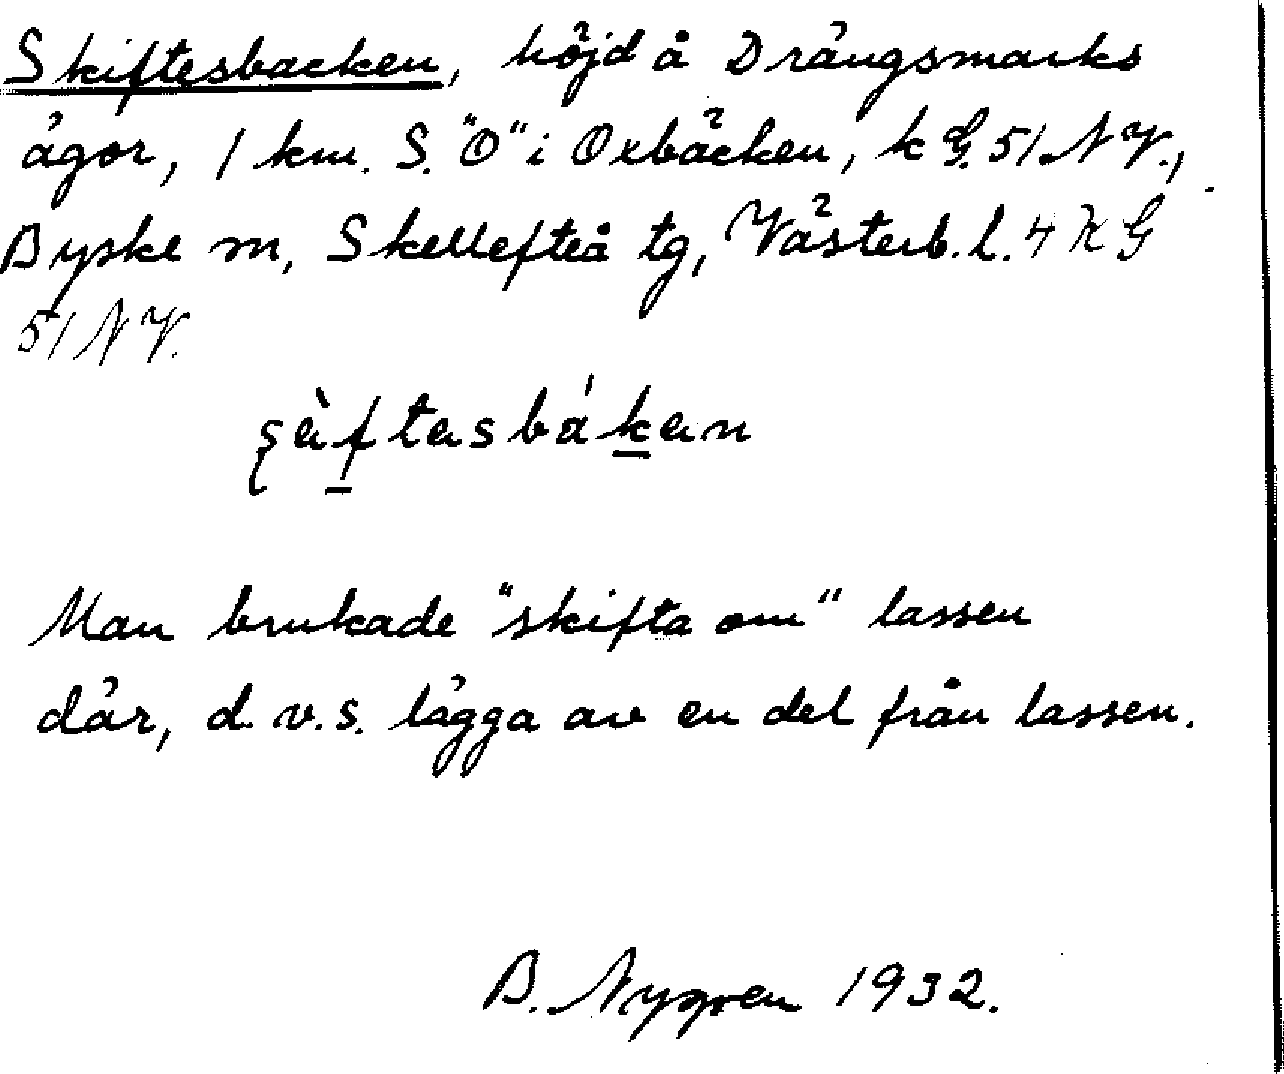 Skiftesbacken, höjd å Drängsmarks
ägor, 1 km. S. "O" i Oxbäcken, k G. 51 NV.,
Byske sn, Skellefteå tg, Västerb. l. 4 K G
51 NV.
Man brukade "skifta om" lassen
där, d.v.s. lägga av en del från lassen.
B. Nygren 1932.